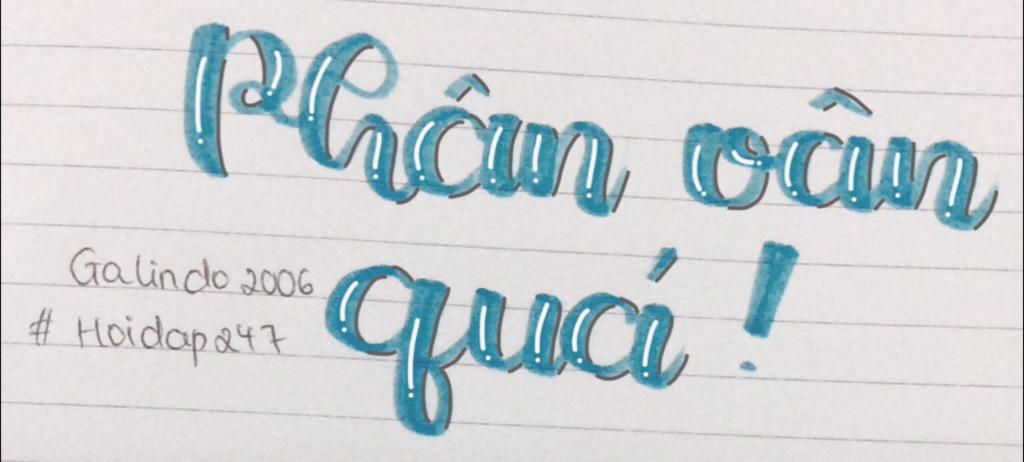 Phân vân
quá !
Galindo 2006
# Hoidap247